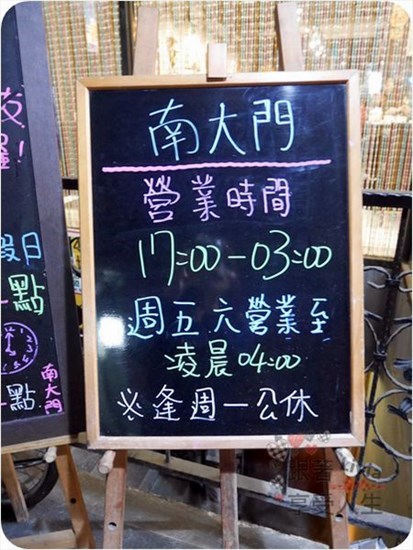 南大門
營業時間
17:00-03:00
週五六營業至
凌晨04:00
※逢週一公休
假日
點
12
1
2
3
點
南大門
享受人生